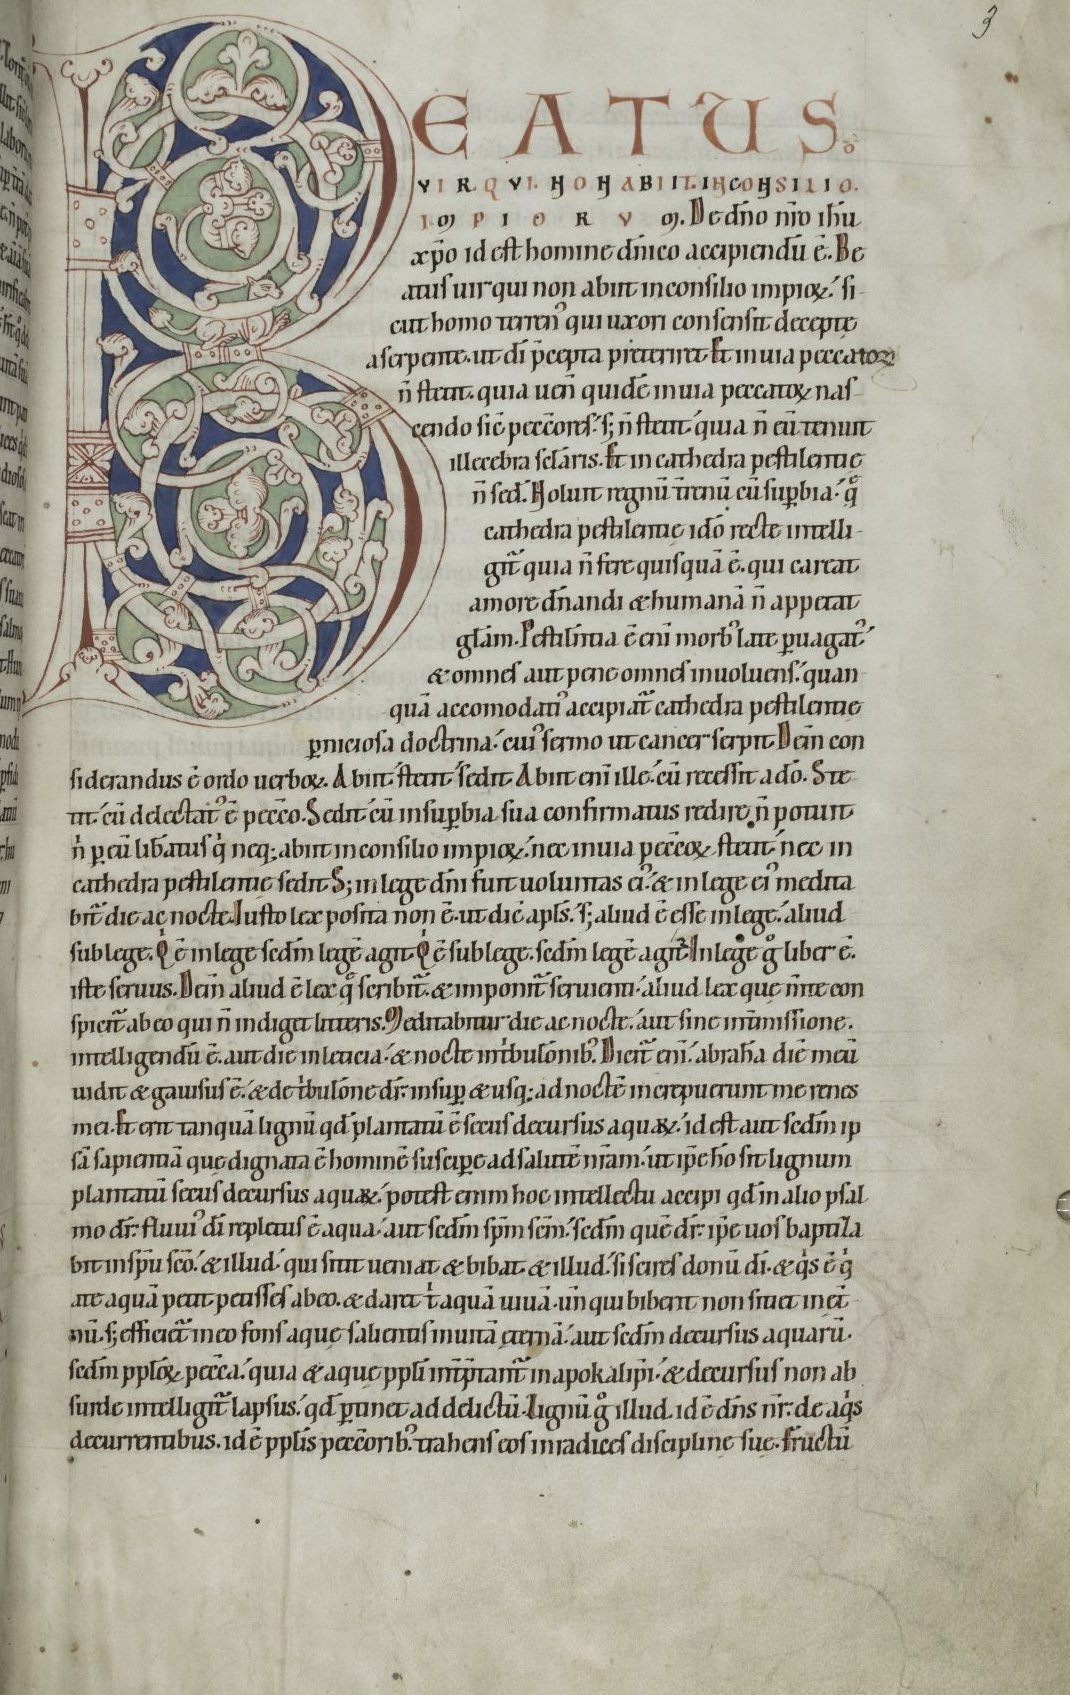 3
BEATUS
VIR QVI NON ABIIT IN CONSILIO.
IMPIORVM. De dn̄o nr̄o ih̄u
xp̄o id est homine dn̄ico accipiendū ē. Be
atus uir qui non abiit in consilio impioꝝ. si
cut homo terrenꝰ qui uxori consensit decepte
a serpente. ut di p̄cepta pr̄eteriret. Et in uia peccatoꝝ
n̄ stetit. quia uen̄ quidē in uia peccatoꝝ nas
cendo sic̄ pecc̄ores. sꝫ n̄ stetit quia n̄ eū tenuit
illecebra sc̄laris. Et in cathedra pestilentie
n̄ sed̄. Noluit regnū tr̄enū cū suꝑbia. qd
cathedra pestilentie ido recte intelli
git̄ quia n̄ fere quisquā ē. qui careat
amore dn̄andi & humanā n̄ appetat
glām. Pestilentia ē eni morbꝰ late ꝑuagatꝰ
& omnes aut pene omnes inuoluens. quan
quā accomodatiꝰ accipiat̄ cathedra pestilentie
ꝑniciosa doctrina. cuiꝰ sermo ut cancer serpit. Dein con
siderandus ē ordo uerboꝝ. Abiit. stetit. sedit. Abiit eni ille. cū recessit a dō. Ste
tit. cū delectatꝰ ē pecc̄o. Sedit. cū in suꝑbia sua confirmatus redire n̄ potuit
n̄ ꝑ eū lib̄atus q̇ neqꝫ abiit in consilio impioꝝ. nec in uia pecc̄oꝝ stetit. nec in
cathedra pestilentie sedit. Sꝫ in lege dn̄i fuit uoluntas eiꝰ. & in lege eiꝰ medita
bit̄ die ac nocte. Iusto lex posita non ē. ut dic̄ apl̄s. sꝫ aliud ē esse in lege. aliud
sub lege. Q̇ ē in lege secdm legē agit. Q̇ ē sub lege. secdm legē agit̄. In lege g° liber ē.
iste seruus. Dein aliud ē lex q̄ scribit̄. & imponit̄ seruienti. aliud lex que m̄te con
spicit̄ ab eo qui n̄ indiget litteris. Meditabitur die ac nocte. aut sine int̄missione.
intelligendū ē. aut die in leticia. & nocte in tribulōnibꝰ. Dicit̄ eni. abrahā diē meū
uidit & gauisus ē. & de tribulōne dr̄. insuꝑ & usqꝫ ad noctē increpuerunt me renes
mei. Et erit tanquā lignū qd̄ plantatū ē secus decursus aquaꝝ. id est aut secdm ip
sā sapientiā que dignata ē hominē susciꝑe ad salutē nr̄am. ut ip̄e hō sit lignum
plantatū secus decursus aquaꝝ. potest enim hoc intellectu accipi qd̄ in alio psal
mo dr̄. fluuiꝰ di repletus ē aqua. aut secdm sp̄m sc̄m. secdm quē dr̄. ip̄e uos baptiza
bit in sp̄u sc̄o. & illud. qui sitit ueniat & bibat. & illud. si scires donū di. & q̇s ē q̇
a te aquā petit petisses ab eo. & daret t̄ aquā uiuā. un̄ qui biberit non sitiet in et̄
nū. sꝫ efficiet̄ in eo fons aque salientis in uitā eternā. aut secdm decursus aquarū.
secdm pploꝝ pecc̄a. quia & aque ppl̄i int̄p̄tant̄ in apokalipsi. & decursus non ab
surde intelligit̄ lapsus. qd̄ ꝑtinet ad delictū. Lignū g° illud. id ē dn̄s nr̄. de aq̇s
decurrentibus. id ē ppl̄is pecc̄oribꝰ. trahens eos in radices discipline sue. fructū